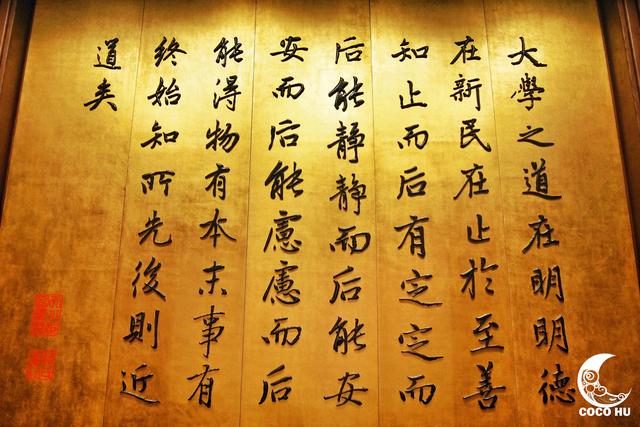 大學之道在明明德
在新民在止於至善
知止而后有定定而
后能静静而后能安
安而后能慮慮而后
能得物有本末事有
終始知所先後則近
道矣
COCO HU